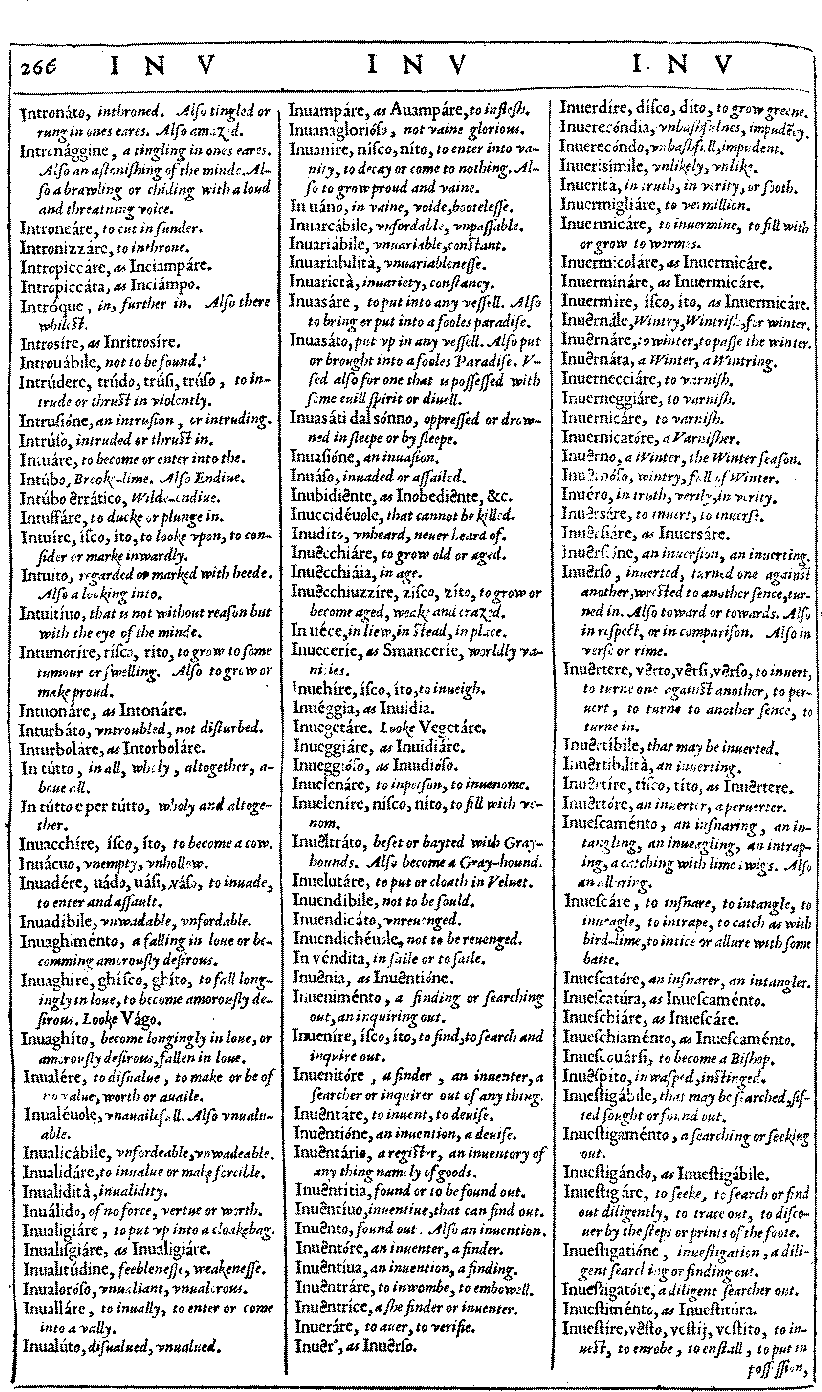 266 I N V I N V I. N V
Intronáto, inthroned. Also tingled or
rung in ones eares. Also amazed.
Intronággine, a tingling in ones eares.
Also an astonishing of the minde. Al-
so a brawling or chiding with a loud
and threatning voice.
Introncáre, to cut in sunder.
Intronizzáre, to inthrone.
Intropiccáre, as Inciampáre.
Intropiccáta, as Inciámpo.
Intróque, in, further in. Also there
whilest.
Introsíre, as Inritrosíre.
Introuábile, not to be found.
Intrúdere, trúdo, trúsi, trúso, to in-
trude or thrust in violently.
Intrusióne, an intrusion, or intruding.
Intrúso, intruded or thrust in.
Intuáre, to become or enter into the.
Intúbo, Brooke-lime. Also Endiue.
Intúbo êrrático, Wilde-endiue.
Intuffáre, to ducke or plunge in.
Intuíre, ísco, íto, to looke vpon, to con-
sider or marke inwardly.
Intuito, regarded or marked with heede.
Also a looking into.
Intuitíuo, that is not without reason but
with the eye of the minde.
Intumoríre, rísco, ríto, to grow to some
tumour or swelling. Also to grow or
make proud.
Intuonáre, as Intonáre.
Inturbáto, vntroubled, not disturbed.
Inturboláre, as Intorboláre.
In tútto, in all, wholy, altogether, a-
boue all.
In tútto e per tútto, wholy and altoge-
ther.
Inuacchíre, ísco, íto, to become a cow.
Inuácuo, vnempty, vnhollow.
Inuadére, uádo, uási, váso, to inuade,
to enter and assault.
Inuadíbile, vnwadable, vnfordable.
Inuaghiménto, a falling in loue or be-
comming amorously desirous.
Inuaghíre, ghísco, ghíto, to fall long-
ingly in loue, to become amorously de-
sirous. Looke Vágo.
Inuaghíto, become longingly in loue, or
amorously desirous, fallen in loue.
Inualére, to disualue, to make or be of
no value, worth or auaile.
Inualéuole, vnauailefull. Also vnualu-
able.
Inualicábile, vnfordeable, vnwadeable.
Inualidáre, to inualue or make forcible.
Inualidità, inualidity.
Inuálido, of no force, vertue or worth.
Inualigiáre, to put vp into a cloakebag.
Inualisgiáre, as Inualigiáre.
Inualitúdine, feeblenesse, weakenesse.
Inualoróso, vnualiant, vnualorous.
Inualláre, to inually, to enter or come
into a vally.
Inualúto, disualued, vnualued.
Inuampáre, as Auampáre, to inflesh.
Inuanaglorióso, not vaine glorious.
Inuaníre, nísco, níto, to enter into va-
nity, to decay or come to nothing. Al-
so to grow proud and vaine.
In uáno, in vaine, voide, bootelesse.
Inuarcábile, vnfordable, vnpassable.
Inuariábile, vnuariable, constant.
Inuariabilità, vnuariablenesse.
Inuarietà, inuariety, constancy.
Inuasáre, to put into any vessell. Also
to bring or put into a fooles paradise.
Inuasáto, put vp in any vessell. Also put
or brought into a fooles Paradise. V-
sed also for one that is possessed with
some euill spirit or diuell.
Inuasáti dal sónno, oppressed or drow-
ned in sleepe or by sleepe.
Inuasióne, an inuasion.
Inuáso, inuaded or assailed.
Inubidiênte, as Inobediênte, &c.
Inuccidéuole, that cannot be killed.
Inudíto, vnheard, neuer heard of.
Inuêcchiáre, to grow old or aged.
Inuêcchiáia, in age.
Inuêcchiuzzíre, zísco, zíto, to grow or
become aged, weake and crazed.
In uéce, in liew, in stead, in place.
Inueceríe, as Smanceríe, worldly va-
nities.
Inuehíre, ísco, íto, to inueigh.
Inuéggia, as Inuídia.
Inuegetáre. Looke Vegetáre.
Inueggiáre, as Inuidiáre.
Inueggióso, as Inuidióso.
Inuelenáre, to inpoison, to inuenome.
Inueleníre, nísco, níto, to fill with ve-
nom.
Inuêltráto, beset or bayted with Gray-
hounds. Also become a Gray-hound.
Inuelutáre, to put or cloath in Veluet.
Inuendíbile, not to be sould.
Inuendicáto, vnreuenged.
Inuendichéuole, not to be reuenged.
In véndita, in saile or to saile.
Inuênia, as Inuêntióne.
Inueniménto, a finding or searching
out, an inquiring out.
Inueníre, ísco, íto, to find, to search and
inquire out.
Inuenitóre, a finder, an inuenter, a
searcher or inquirer out of any thing.
Inuêntáre, to inuent, to deuise.
Inuêntióne, an inuention, a deuise.
Inuêntário, a register, an inuentory of
any thing namely of goods.
Inuêntítia, found or to be found out.
Inuêntíuo, inuentiue, that can find out.
Inuênto, found out. Also an inuention.
Inuêntóre, an inuenter, a finder.
Inuêntíua, an inuention, a finding.
Inuêntráre, to inwombe, to embowell.
Inuêntríce, a she finder or inuenter.
Inueráre, to auer, to verifie.
Inuêr', as Inuêrso.
Inuerdíre, dísco, díto, to grow greene.
Inuerecóndia, vnbashfulnes, impudēcy.
Inuerecóndo, vnbashfull, impudent.
Inuerisímile, vnlikely, vnlike.
Inuerità, in truth, in verity, or sooth.
Inuermigliáre, to vermillion.
Inuermicáre, to inuermine, to fill with
or grow to wormes.
Inuermicoláre, as Inuermicáre.
Inuermináre, as Inuermicáre.
Inuermíre, ísco, íto, as Inuermicáre.
Inuêrnále, Wintry, Wintrish, for winter.
Inuêrnáre, to winter, to passe the winter.
Inuêrnáta, a Winter, a Wintring.
Inuernecciáre, to varnish.
Inuerneggiáre, to varnish.
Inuernicáre, to varnish.
Inuernicatóre, a Varnisher.
Inuêrno, a Winter, the Winter season.
Inuêrnóso, wintry, full of Winter.
Inuéro, in truth, verily, in verity.
Inuêrsáre, to inuert, to inuerse.
Inuêrsiáre, as Inuersáre.
Inuêrsióne, an inuersion, an inuerting.
Inuêrso, inuerted, turned one against
another, wrested to another sence, tur-
ned in. Also toward or towards. Also
in respect, or in comparison. Also in
verse or rime.
Inuêrtere, vêrto, vêrsi, vêrso, to inuert,
to turne one against another, to per-
uert, to turne to another sence, to
turne in.
Inuêrtíbile, that may be inuerted.
Inuêrtibilità, an inuerting.
Inuêrtíre, tísco, títo, as Inuêrtere.
Inuêrtóre, an inuerter, a peruerter.
Inuescaménto, an insnaring, an in-
tangling, an inueagling, an intrap-
ing, a catching with lime twigs. Also
an alluring.
Inuescáre, to insnare, to intangle, to
inueagle, to intrape, to catch as with
bird-lime, to intice or allure with some
baite.
Inuescatóre, an insnarer, an intangler.
Inuescatúra, as Inuescaménto.
Inueschiáre, as Inuescáre.
Inueschiaménto, as Inuescaménto.
Inuescouársi, to become a Bishop.
Inuêspíto, inwasped, instinged.
Inuestigábile, that may be searched, sif-
ted sought or found out.
Inuestigaménto, a searching or seeking
out.
Inuestigándo, as Inuestigábile.
Inuestigáre, to seeke, to search or find
out diligently, to trace out, to disco-
uer by the steps or prints of the foote.
Inuestigatióne, inuestigation, a dili-
gent searching or finding out.
Inuestigatóre, a diligent searcher out.
Inuestiménto, as Inuestitúra.
Inuestíre, vêsto, vestíj, vestíto, to in-
uest, to enrobe, to enstall, to put in
possession,